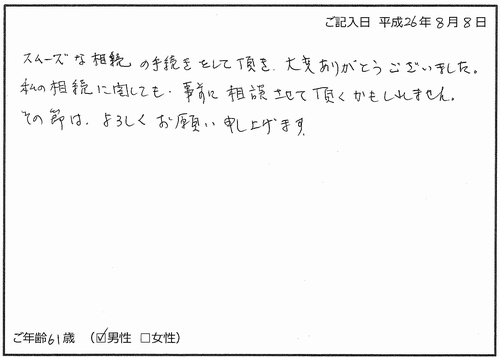 ご記入日 平成26年8月8日
スムーズな相続の手続きをして頂き、大変ありがとうございました。
私の相続に関しても、事前に相談させて頂くかもしれません。
その節は、よろしくお願い申し上げます
ご年齢61歳 (☑男性 □女性)